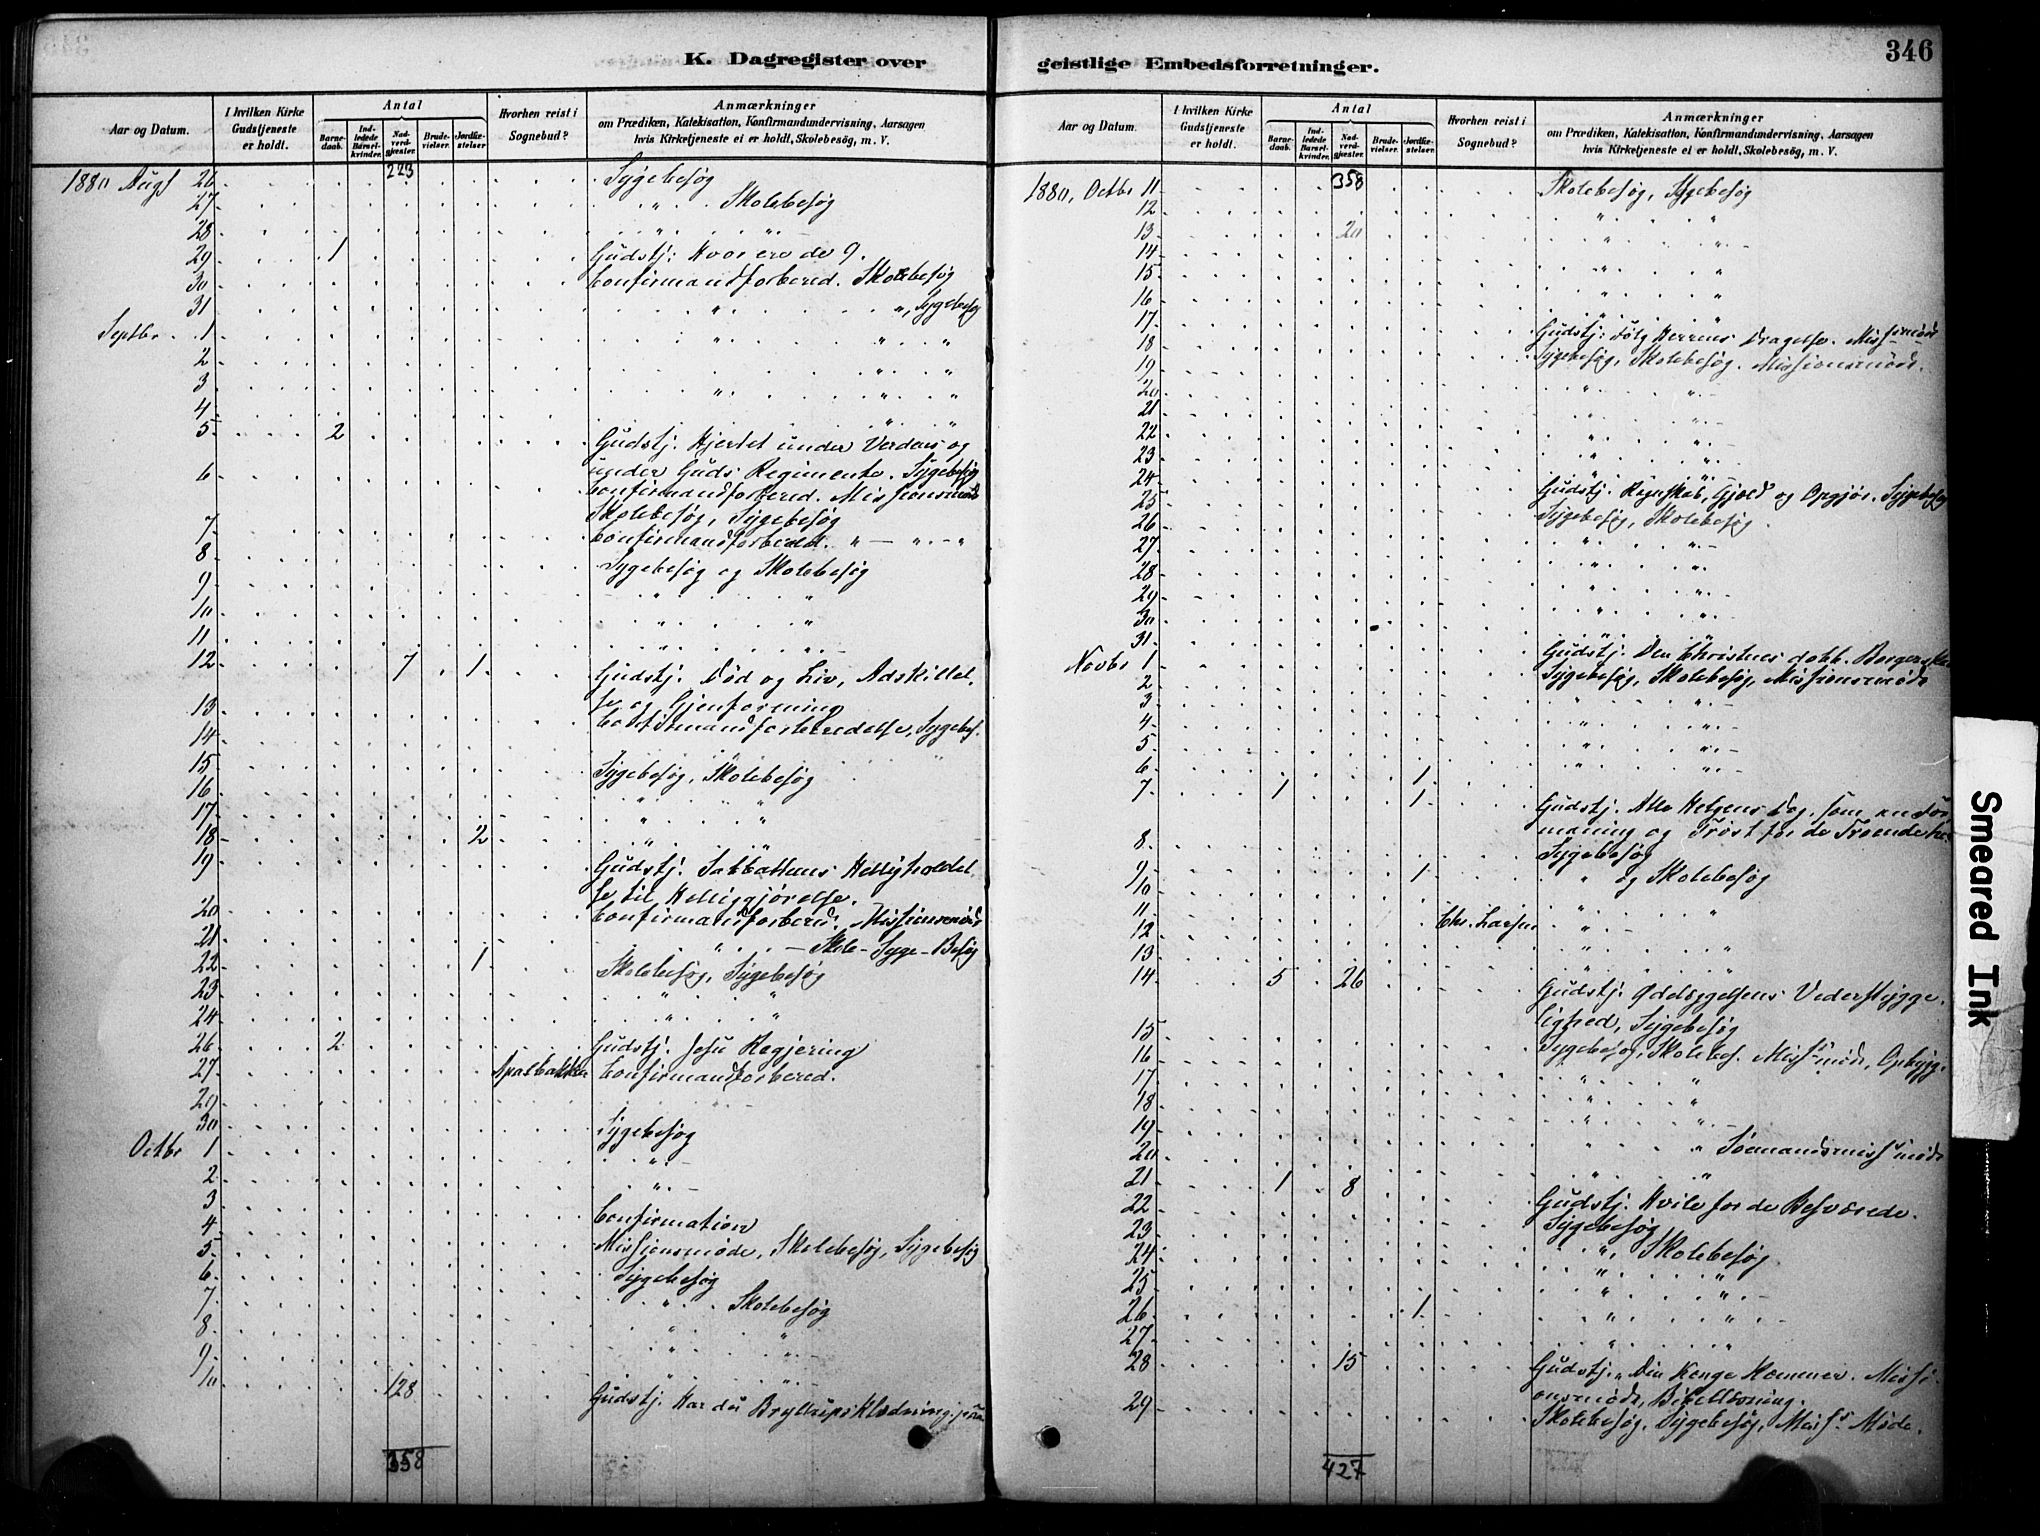 K. Dagregister over
Aar og Datum.
I hvilken Kirke Gudstjeneste er holdt.
Antal
Barne-daab.
Ind-ledede Barsel-kvinder.
Nad-verd-gjæster.
Brude-vielser.
Jordfæ-stelser
Hvorhen reist i Sognebud?
Anmærkninger
om Prædiken, Katekisation, Konfirmandundervisning, Aarsagen
hvis Kirketjeneste ei er holdt, Skolebesög, m. V.
223
1880 Augs 26 Sygebesøg
27 " Skolebesøg
28 " "
29 1 Gudstj: Hvor ere de 9.
30 Confirmandforbered. Skolebesøg
31 " ", Sygebesøg
Septbr 1 " " "
2 " "
3 " " "
4 " "
5 2 Gudstj. Hjertet under Verdens og
under Guds Regimente. Sygebesøg
6 Confirmandforbered. Missionsmøde
Skolebesøg, Sygebesøg
7 Confirmandforbered. " — " — "
8 Sygebesøg og Skolebesøg
9 " "
10 " "
11 " "
12 7 1 Gudstj. Død og Liv, Adskillel.
se og Gjenforening
13 Confirmandforberedelse, Sygebes.
14 " "
15 Sygebesøg, Skolebesøg
16 " "
17 " "
18 2 " "
19 Gudstj. Sabbathens Helligholdel
se til Helliggjørelse.
20 Confirmandforbered. Missionsmøde
21 " — Skole-Syge-Besøg
22 1 Skolebesøg, Sygebesøg
23 " "
24 " "
26 2 Gudstj. Jesu Regjering
27 Apalbakken Confirmandforbered.
29
30 Sygebesøg
Octbr 1 "
2 "
3 Confirmation
4 Missionsmøde, Skolebesøg, Sygebesøg
5 Sygebesøg
6 " Skolebesøg
7 " "
8
9 " "
10 128 Gudstj. Har du Bryllupsklædning
358
geistlige Embedsforretninger.
346
Aar og Datum.
I hvilken Kirke Gudstjeneste er holdt.
Antal
Barne-daab.
Ind-ledede Barsel-kvinder.
Nad-verd-gjæster.
Brude-vielser.
Jordfæ-stelser.
Hvorhen reist i Sognebud?
Anmærkninger
om Prædiken, Katekisation, Konfirmandundervisning, Aarsagen
hvis Kirketjeneste ei er holdt, Skolebesög, m. V.
1880, Octbr 11 358 Skolebesøg, Sygebesøg
12 " "
13 20 " "
14 " "
15 " "
16 " "
17 Gudstj: Følg Herrens Dragelse. Miss.møde
18 Sygebesøg, Skolebesøg. Missionsmøde.
19 " "
20 " "
21 " "
22 " "
23 " "
24 Gudstj. Regnskab, Gjæld og Opgjør. Sygebesøg
25 Sygebesøg, Skolebesøg.
26 " "
27 " "
28 " "
29 " "
30 " "
31 Gudstj. Den Christnes dobb. Borgerskab
Novbr 1 Sygebesøg, Skolebesøg, Missionsmøde
2 " "
3 " "
4 " "
5 " "
6 1
7 1 1 Gudstj. Alle Helgens Dag, som en For
maning og Trøst for de Troende
8 Sygebesøg
9 1 " og Skolebesøg
10
11 " "
12 Chr. Larsen "
13 " "
14 5 26 Gudstj. Ødelæggelsens Vederstygge.
lighed, Sygebesøg
15 Sygebesøg, Skolebes. Miss.møde, Opbygg.
16 " "
17 " "
18 " "
19 " Sømandsmiss.møde
20 " "
21 1 8 Gudstj. Hvile for de Besværede.
22 Sygebesøg
23 ", Skolebesøg
24 " "
25 " "
26 1 " "
27 " "
28 15 Gudstj. Din Konge kommer. Missi.
onsmøde, Bibellæsning.
29 Skolebesøg, Sygebesøg, Miss. Møde.
427
Smeared Ink